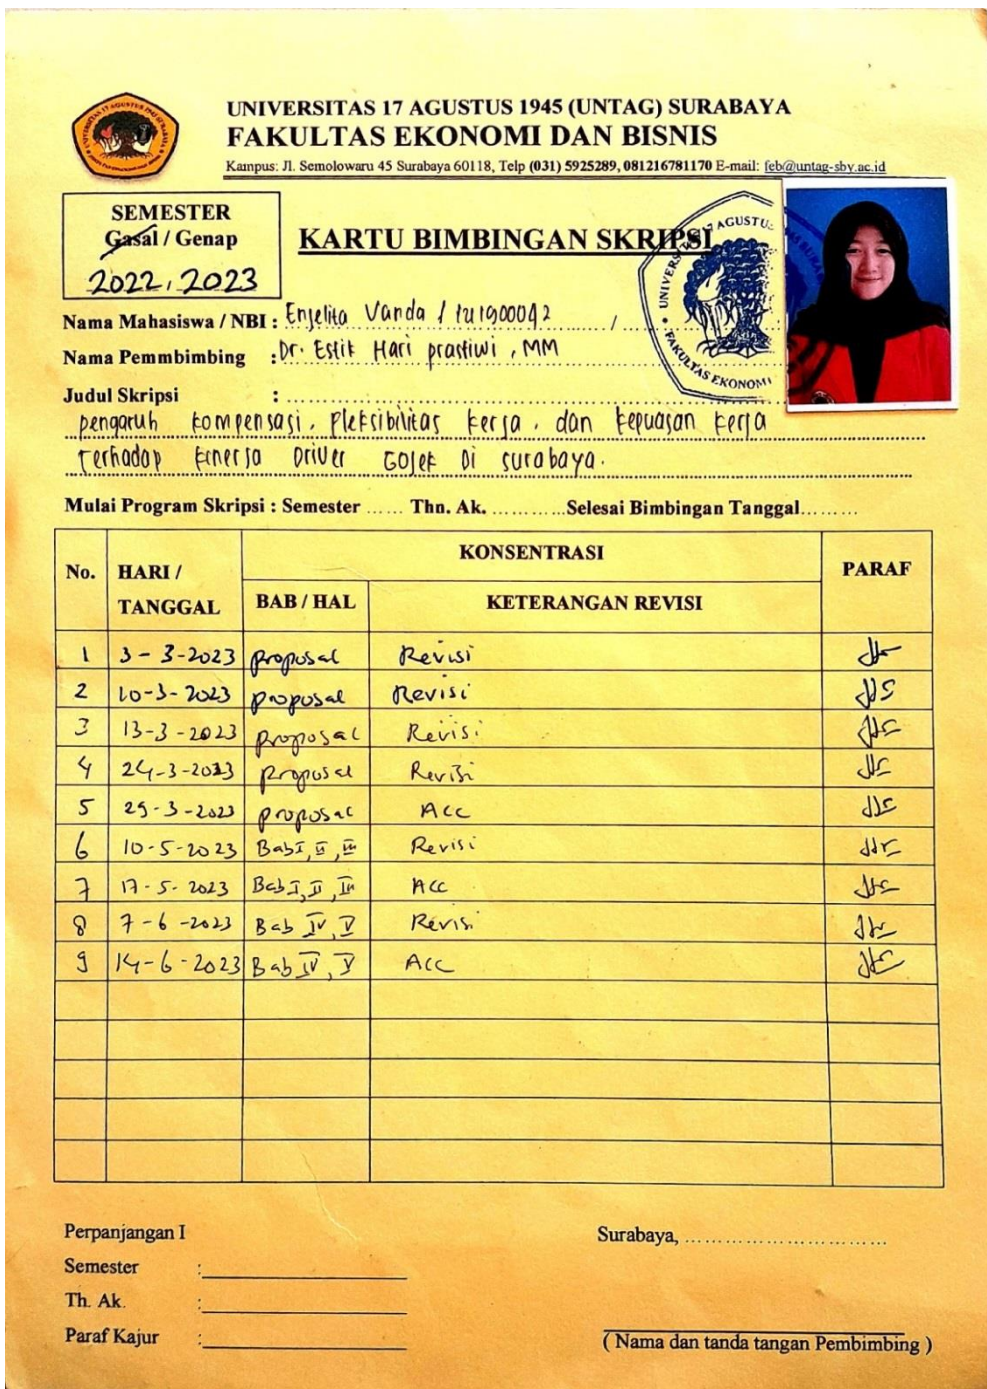 UNIVERSITAS 17 AGUSTUS 1945 (UNTAG) SURABAYA
FAKULTAS EKONOMI DAN BISNIS
Kampus: Jl. Semolowaru 45 Surabaya 60118, Telp (031) 5925289, 081216781170 E-mail: feb@untag-sby.ac.id
SEMESTER
Gasal / Genap
2022, 2023
KARTU BIMBINGAN SKRIPSI
Nama Mahasiswa / NBI : Enjelita Vanda / 1211900042 /
Nama Pemmbimbing : Dr. Estik Hari prastiwi , MM
Judul Skripsi :
pengaruh kompensasi, Fleksibilitas kerja, dan kepuasan kerja
terhadap kinerja Driver Gojek Di surabaya.
Mulai Program Skripsi : Semester ...... Thn. Ak. ............Selesai Bimbingan Tanggal.........
No. HARI / TANGGAL KONSENTRASI PARAF
BAB / HAL KETERANGAN REVISI
1 3-3-2023 proposal Revisi
2 10-3-2023 proposal Revisi
3 13-3-2023 proposal Revisi
4 24-3-2023 proposal Revisi
5 29-3-2023 proposal Acc
6 10-5-2023 Bab I, II, III Revisi
7 17-5-2023 Bab I, II, III Acc
8 7-6-2023 Bab IV, V Revisi
9 14-6-2023 Bab IV, V Acc
Perpanjangan I
Surabaya, ..............................
Semester :
Th. Ak. :
Paraf Kajur :
( Nama dan tanda tangan Pembimbing )